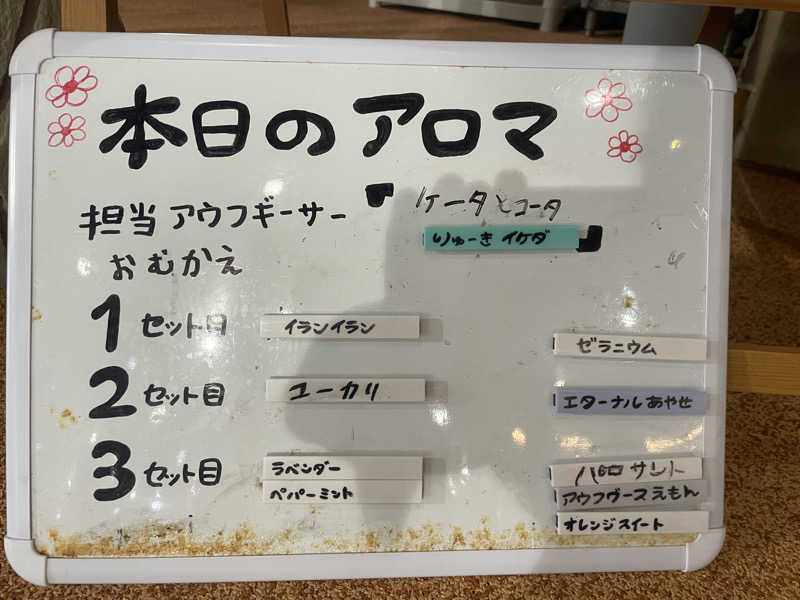 本日のアロマ
担当 アウフギーサー
ケータとコータ
りゅーき イケダ
おむかえ
1セット目
イランイラン
ゼラニウム
2セット目
ユーカリ
エターナルあやせ
3セット目
ラベンダー
ペパーミント
パロサント
アウフヴースえもん
オレンジスイート